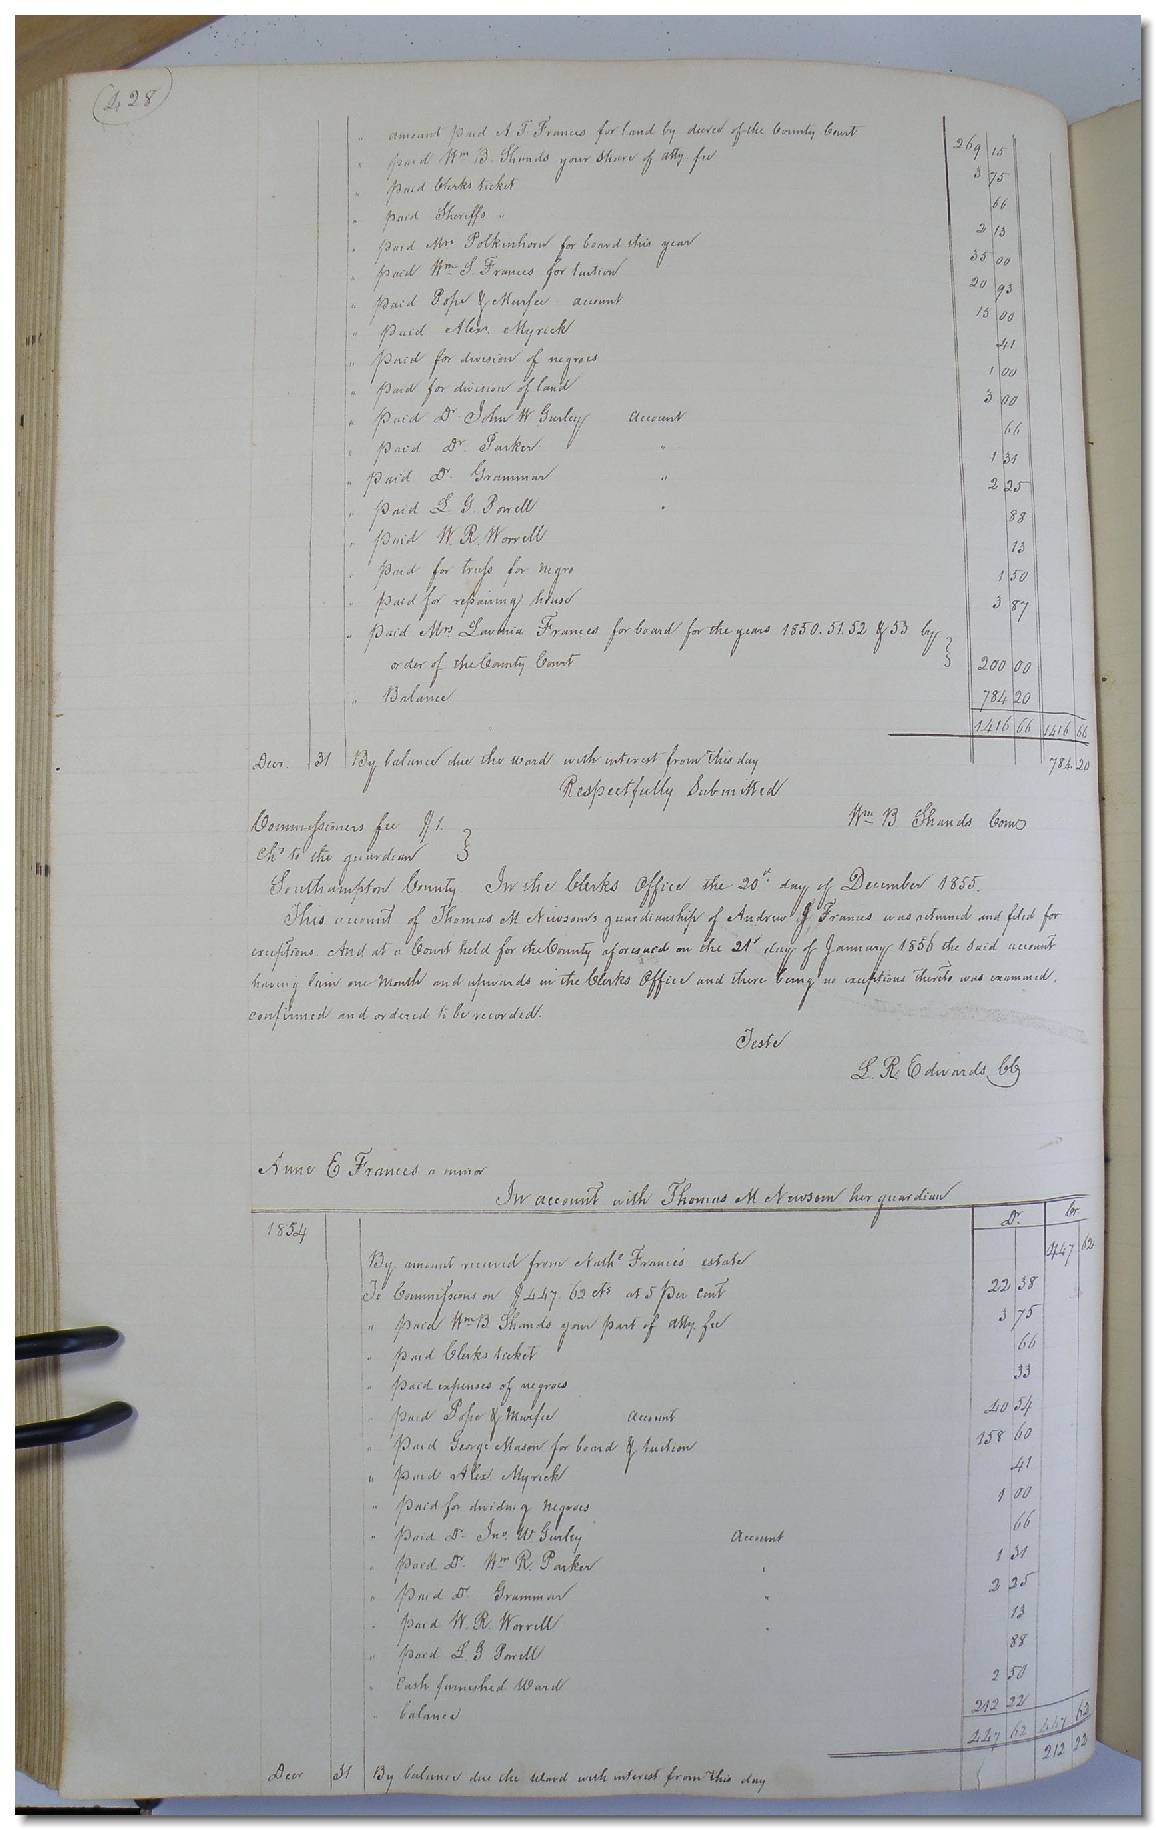 428
" amount paid A. T. Frances for land by decree of the County Court 269 15
" paid Wm B. Shands your share of atty. fee 3 75
" paid Clerks ticket 66
" paid Sheriffs " 2 13
" paid Mrs Polkinhorn for board this year 35 00
" paid Wm S. Frances for tuition 20 93
" paid Pope & Murfee account 15 00
" paid Alex. Myrick 41
" paid for division of negroes 1 00
" paid for division of land 3 00
" paid Dr John W Gurley account 66
" paid Dr. Parker " 1 31
" paid Dr. Grammar " 2 25
" paid L. G. Powell " 88
" paid W. R. Worrell 13
" paid for truss for negro 1 50
" paid for repairing house 3 87
" paid Mrs Lavenia Frances for board for the years 1850. 51. 52 & 53 by
order of the County Court 200 00
" Balance 784 20
1416 66 1416 66
Decr. 31 By balance due the ward with interest from this day 784 20
Respectfully Submitted
Commissioners fee $1. Wm B Shands Com
Chd to the guardian
Southampton County In the Clerks Office the 20th day of December 1855.
This account of Thomas M Newsom's guardianship of Andrew J. Frances was returned and filed for
exceptions. And at a Court held for the County aforesaid on the 21st day of January 1856 the said account
having lain one month and upwards in the Clerks Office and there being no exceptions thereto was examined,
confirmed and ordered to be recorded.
Teste
L. R. Edwards CC
Anne E Frances a minor
In account with Thomas M Newsom her guardian
Dr. Cr.
1854
By amount received from Nathl Frances estate 447 62
To Commissions on $447. 62 cts at 5 per cent 22 38
" paid Wm B Shands your part of atty. fee 3 75
" paid Clerks ticket 66
" paid expenses of negroes 33
" paid Pope & Murfee account 40 54
" paid George Mason for board & tuition 158 60
" paid Alex. Myrick 41
" paid for dividing negroes 1 00
" paid Dr. Jno. W. Gurley Account 66
" paid Dr. Wm R. Parker " 1 31
" paid Dr. Grammar " 2 25
" paid W. R. Worrell " 13
" paid L. G Powell 88
" Cash furnished Ward 2 50
" balance 212 22
447 62 447 62
Decr 31 By balance due the Ward with interest from this day 212 22